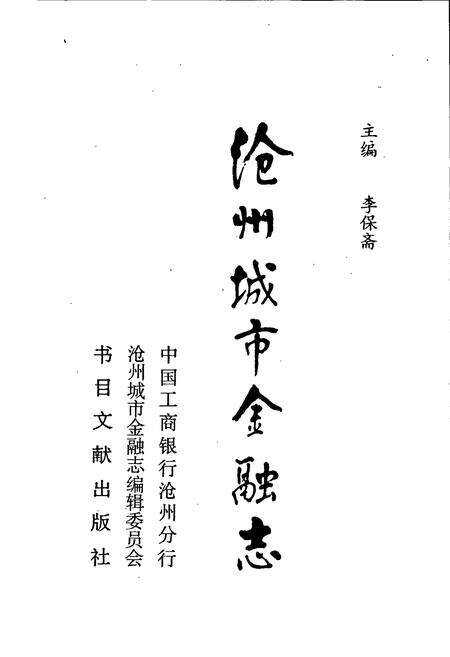 主编 李保斋
沧州城市金融志
中国工商银行沧州分行
沧州城市金融志编辑委员会
书目文献出版社